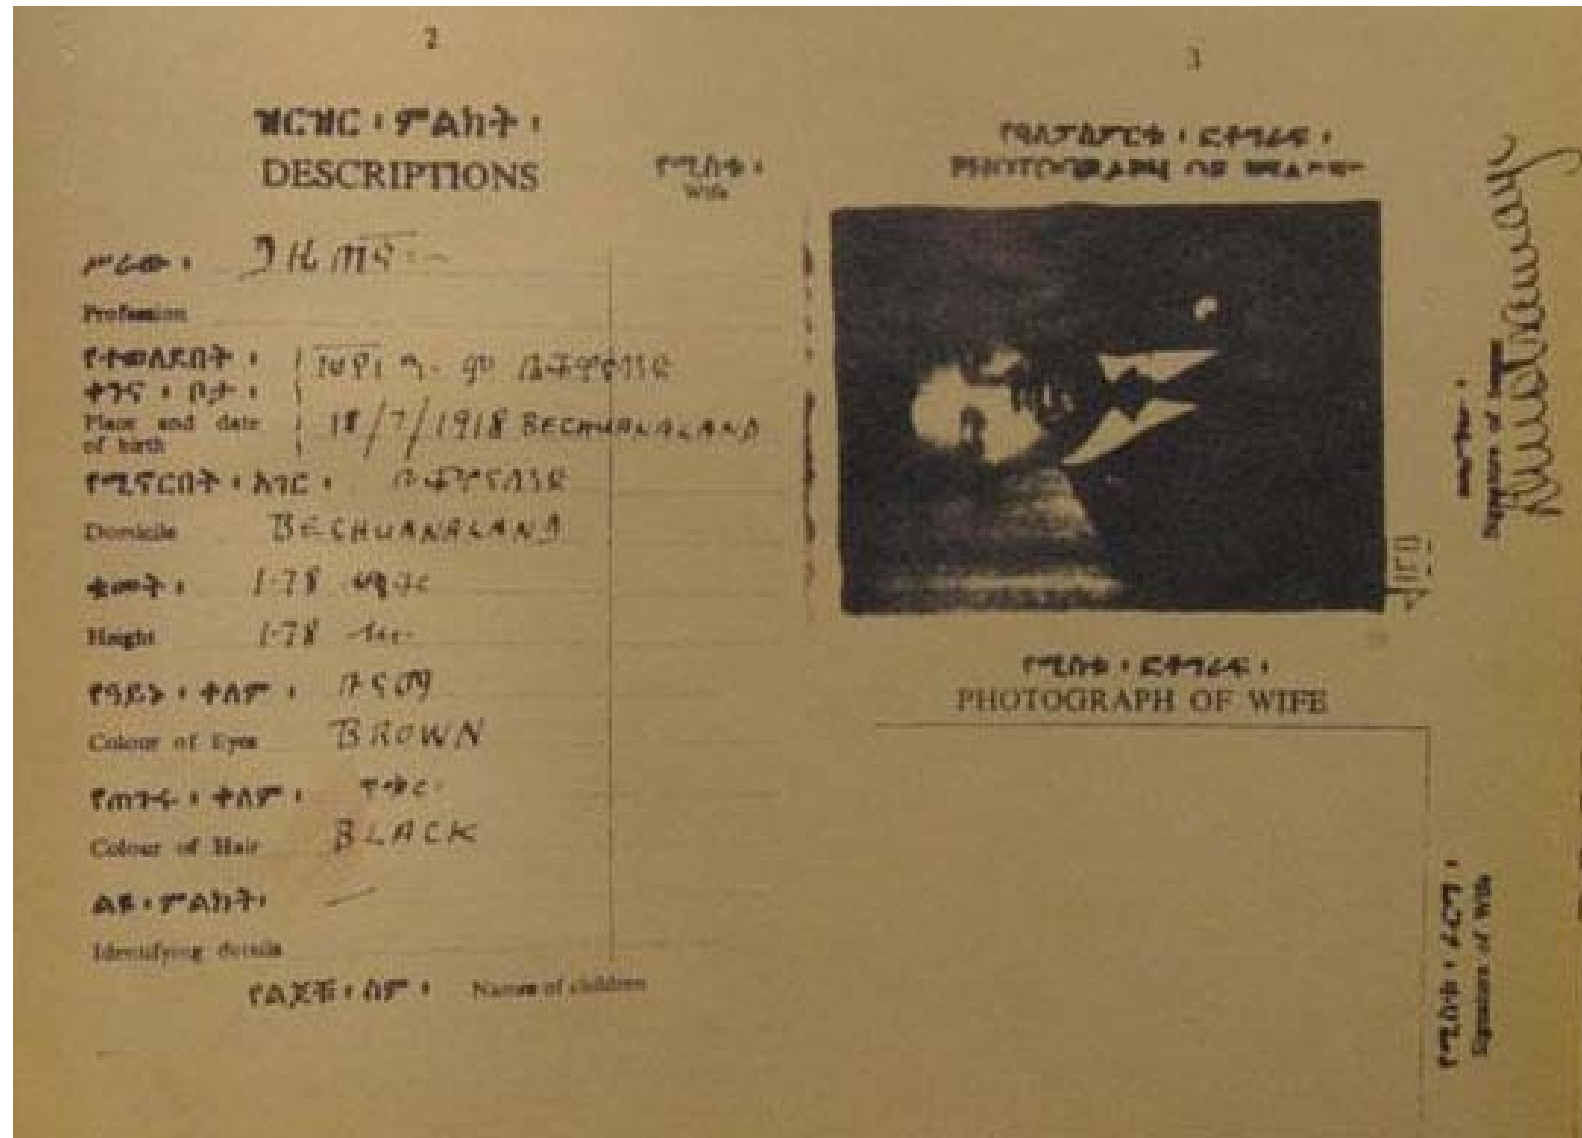 2
ዝርዝር ፡ ምልክት ፡
DESCRIPTIONS
የሚስቱ ፡
Wife
ሥራው ፡ ጋዜጠኛ
Profession
የተወለደበት ፡
ቀንና ፡ ቦታ ፡
Place and date
of birth
18/7/1918 BECHUANALAND
የሚኖርበት ፡ አገር ፡
Domicile BECHUANALAND
ቁመት ፡ 1.78 ሜትር
Height 1.78
የዓይኑ ፡ ቀለም ፡ ቡናማ
Colour of Eyes BROWN
የጠጉሩ ፡ ቀለም ፡ ጥቁር
Colour of Hair BLACK
ልዩ ፡ ምልክት ፡ —
Identifying details
የልጆቹ ፡ ስም ፡ Names of children
3
የባለፓስፖርቱ ፡ ፎቶግራፍ ፡
PHOTOGRAPH OF
Signature of
የሚስቱ ፡ ፎቶግራፍ ፡
PHOTOGRAPH OF WIFE
የሚስቱ ፡ ፊርማ ፡
Signature of Wife